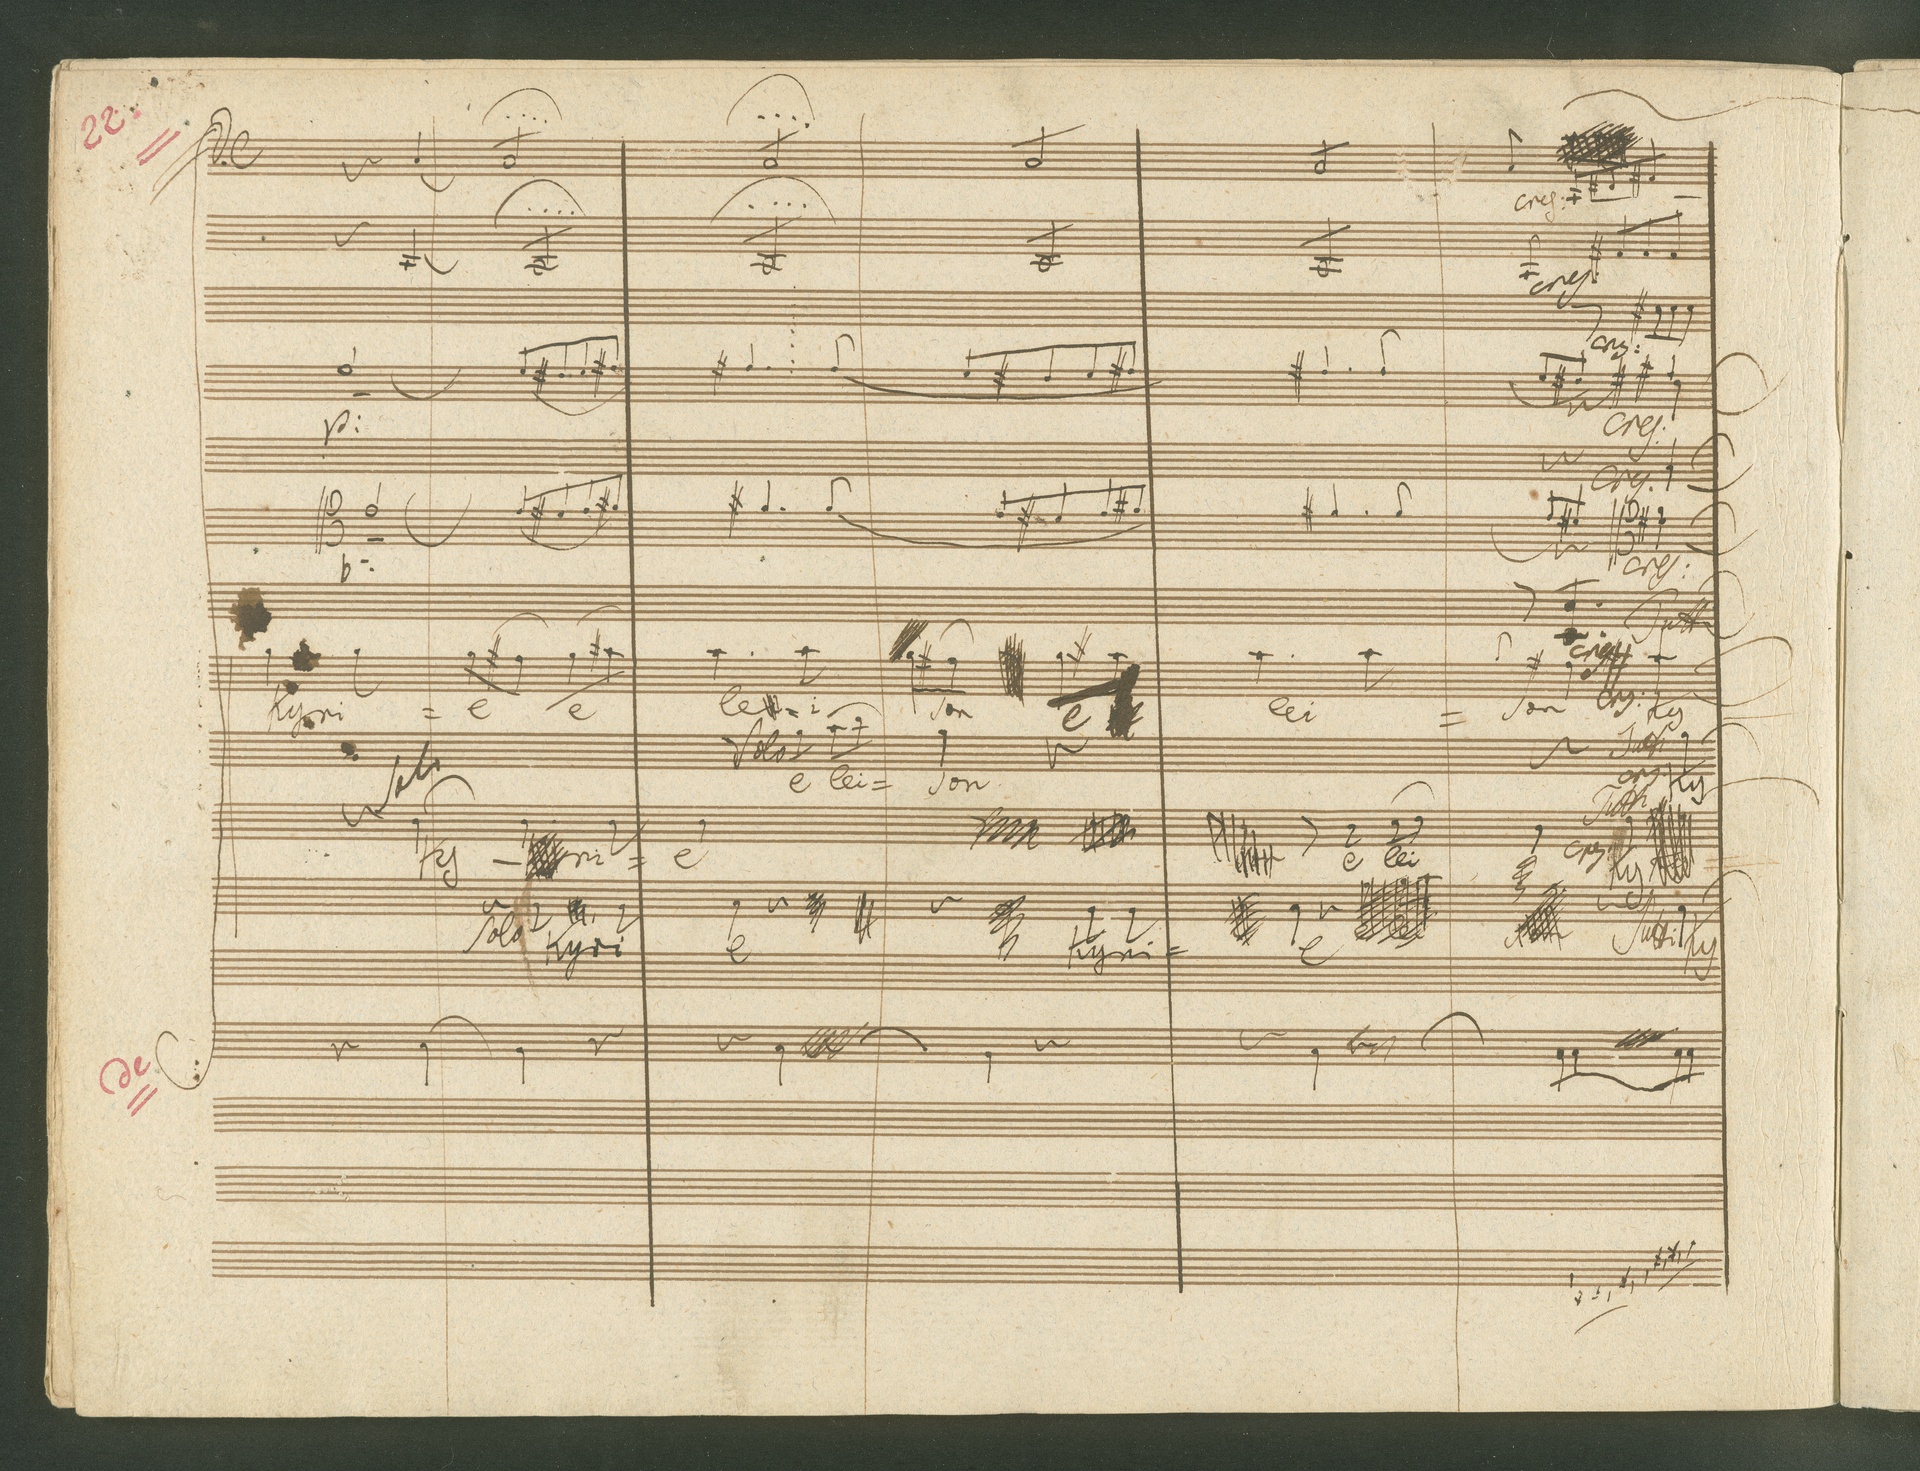 22:
cres:
cres:
cres:
p:
cres:
cres:
p:
cres:
Tutti
cres:
Kyri = e e lei = i son e lei = son cres: Ky
Solo Tutti
e lei = son cres: Ky
Solo Tutti
Ky – ri = e e lei cres: Ky
Solo Kyri e Kyri = e Tutti Ky